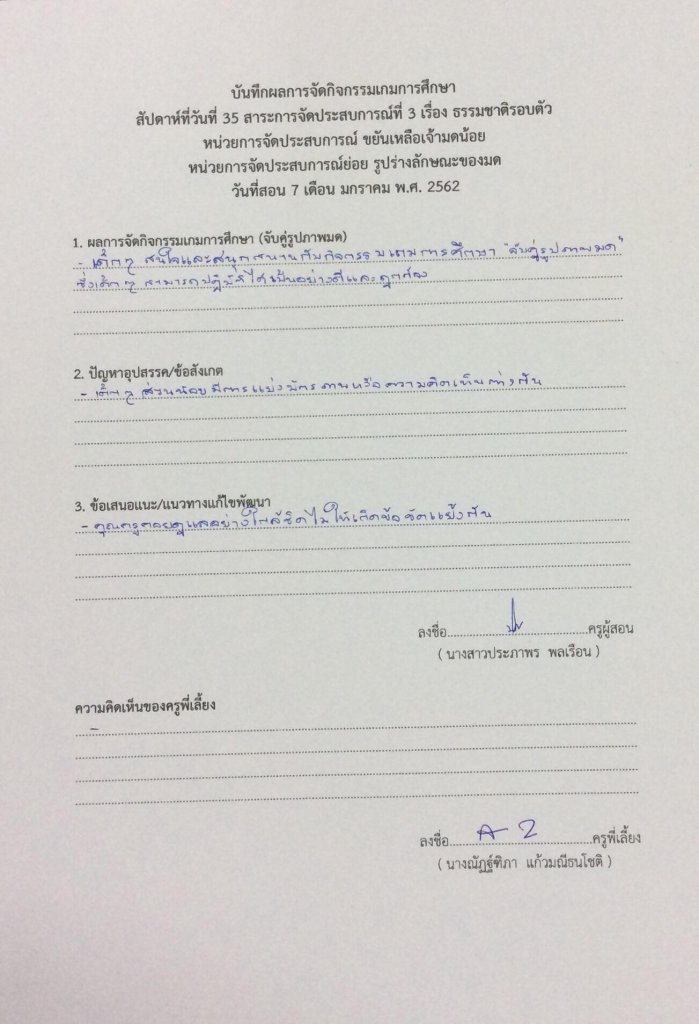 บันทึกผลการจัดกิจกรรมเกมการศึกษา
สัปดาห์ที่วันที่ 35 สาระการจัดประสบการณ์ที่ 3 เรื่อง ธรรมชาติรอบตัว
หน่วยการจัดประสบการณ์ ขยันเหลือเจ้ามดน้อย
หน่วยการจัดประสบการณ์ย่อย รูปร่างลักษณะของมด
วันที่สอน 7 เดือน มกราคม พ.ศ. 2562
1. ผลการจัดกิจกรรมเกมการศึกษา (จับคู่รูปภาพมด)
- เด็กๆ สนใจและสนุกสนานกับกิจกรรมเกมการศึกษา "จับคู่รูปภาพมด"
ซึ่งเด็กๆ สามารถปฏิบัติได้เป็นอย่างดีและถูกต้อง
2. ปัญหาอุปสรรค/ข้อสังเกต
- เด็กๆ ส่วนน้อยมีการแย่งบัตรภาพหรือความคิดเห็นต่างกัน
3. ข้อเสนอแนะ/แนวทางแก้ไขพัฒนา
- คุณครูคอยดูแลอย่างใกล้ชิดไม่ให้เกิดข้อขัดแย้งกัน
ลงชื่อ.......................................ครูผู้สอน
( นางสาวประภาพร พลเรือน )
ความคิดเห็นของครูพี่เลี้ยง
-
ลงชื่อ.......................................ครูพี่เลี้ยง
( นางณัฏฐ์ฑิภา แก้วมณีธนโชติ )